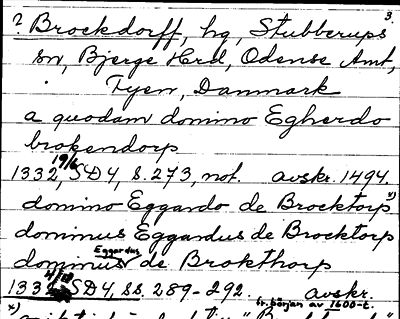 3.
? Brockdorff, hg, Stubberups
sn, Bjerge Hrd, Odense Amt,
Fyen, Danmark
a quodam domino Egherdo
brokendorp
1332 19/6, SD4, s. 273, not. avskr. 1494.
domino Eggardo de Brocktorp x)
dominus Eggardus de Brocktorp
dominus Eggardus de Brokthorp
1332 SD4, ss. 289-292. avskr.
fr. början av 1600-t.
x)